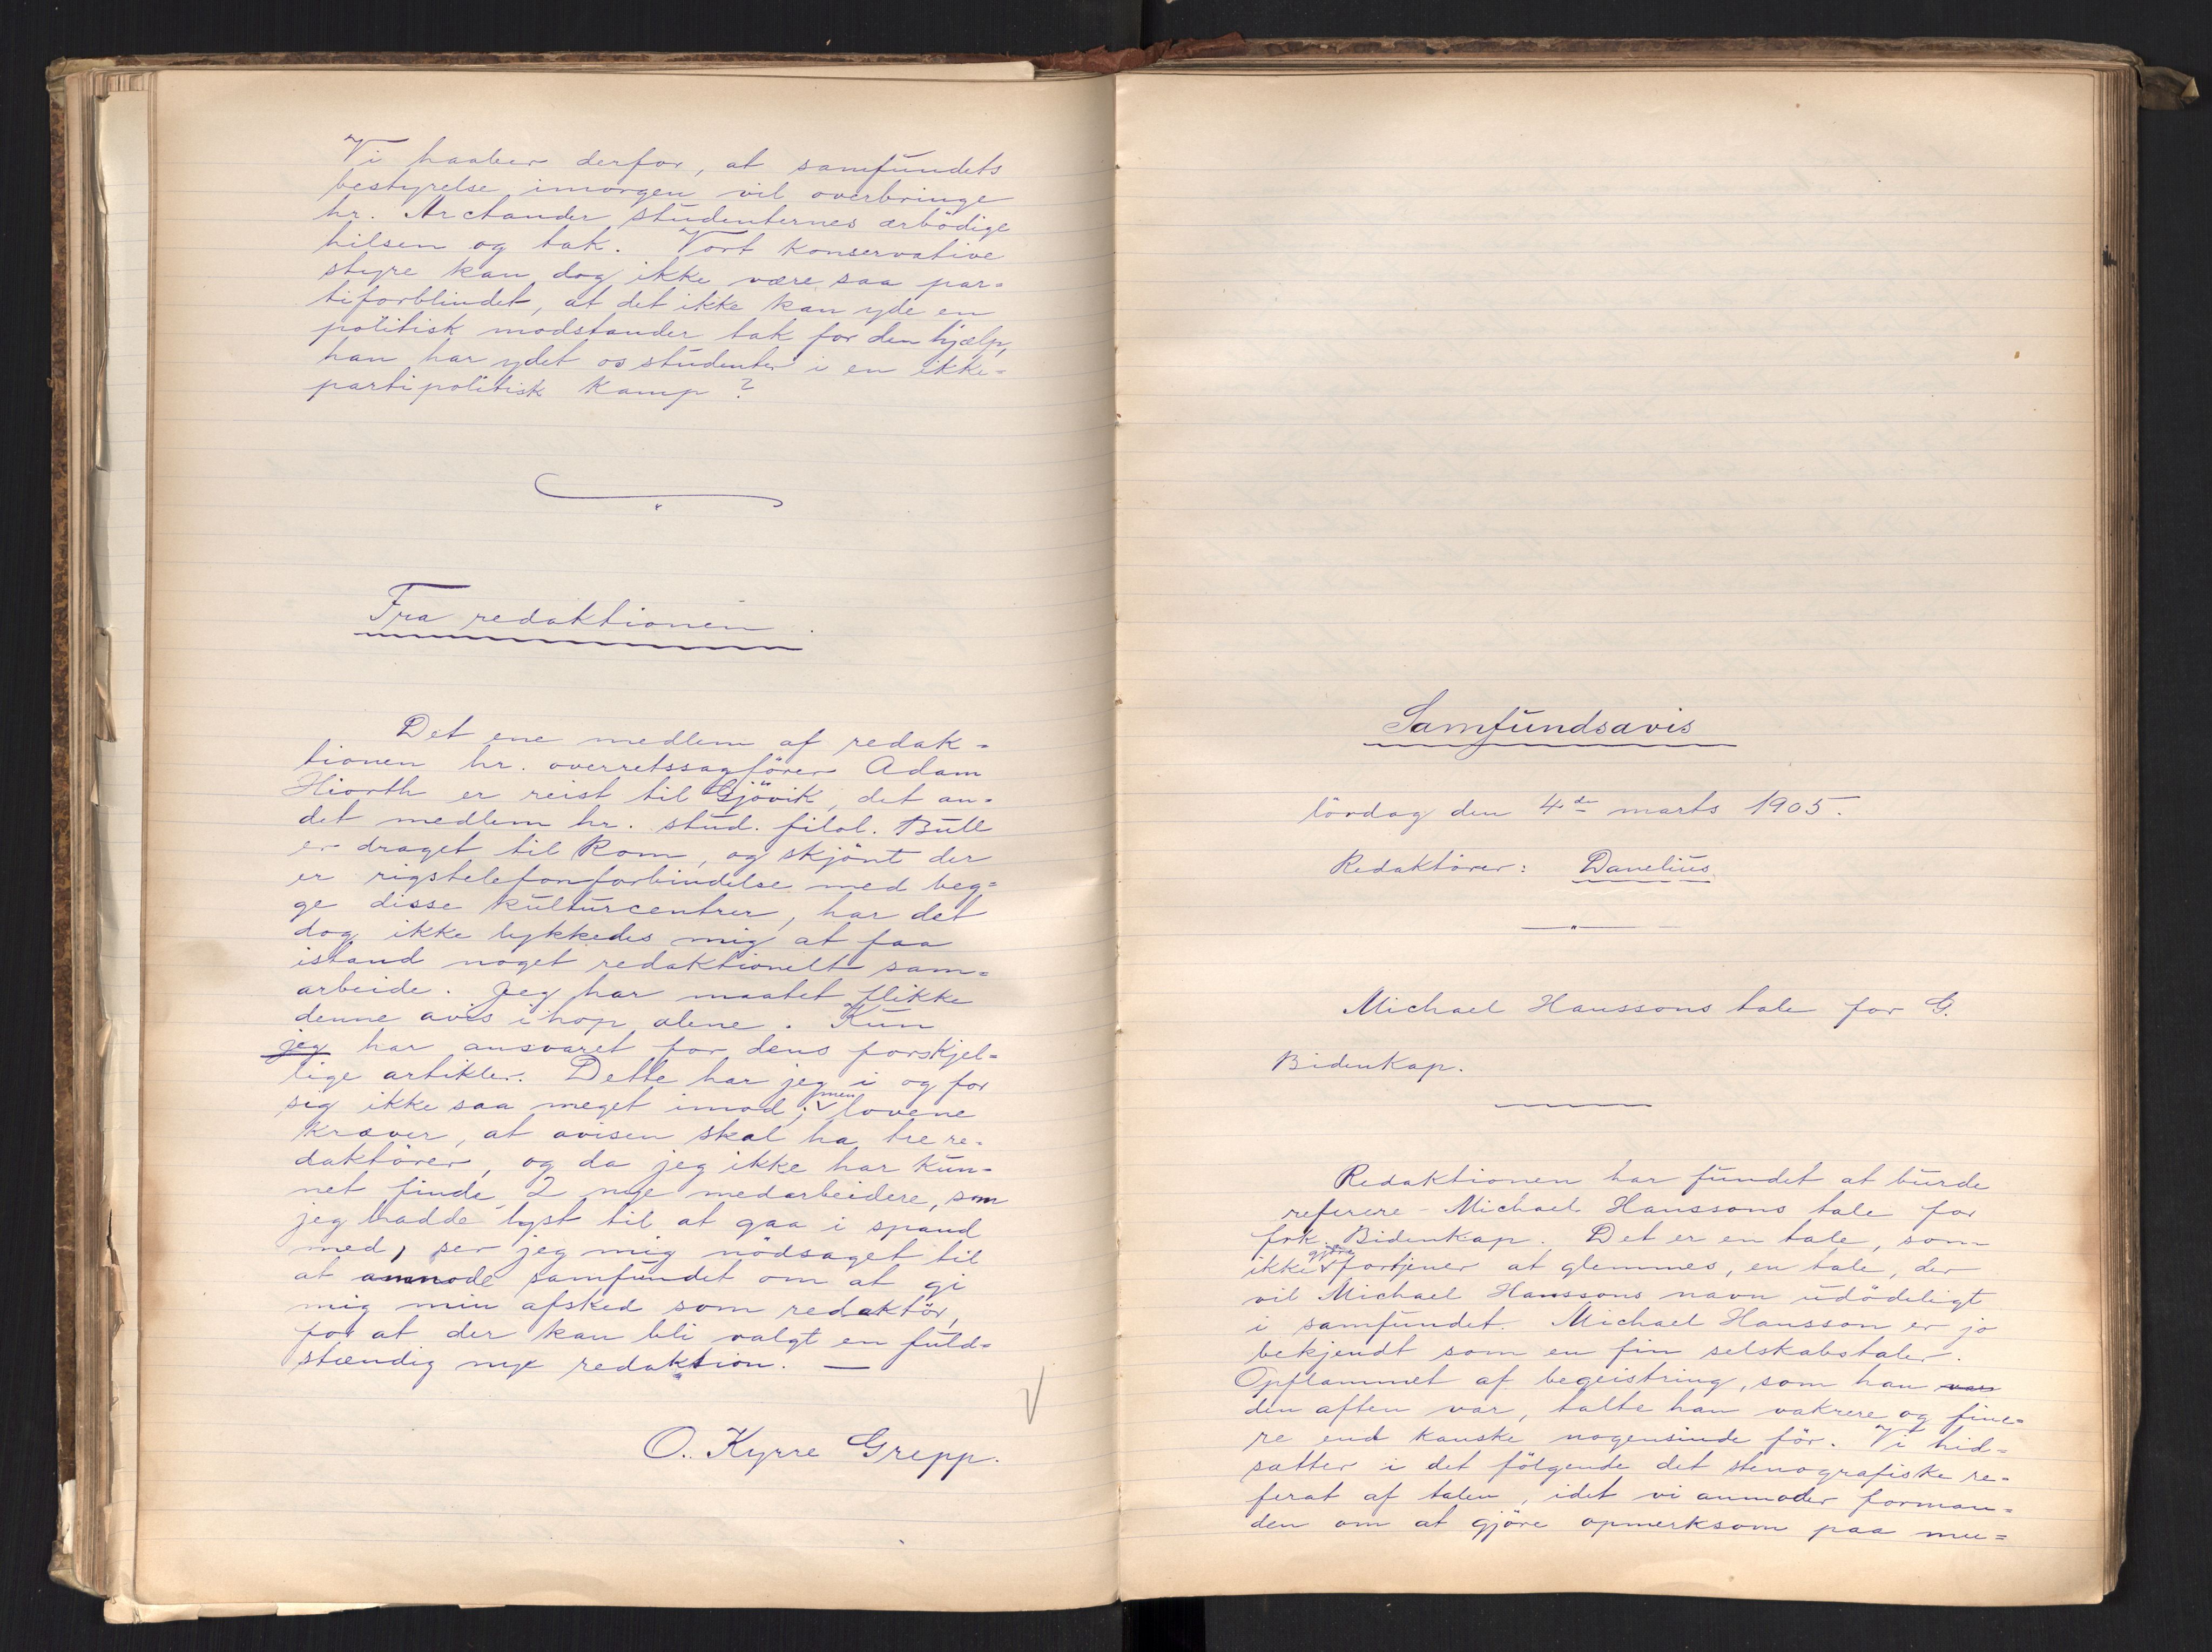 Vi haaber derfor, at samfundets
bestyrelse imorgen vil overbringe
hr. Arctander studenternes ærbödige
hilsen og tak. Vort konservative
styre kan dog ikke være saa par=
tiforblindet, at det ikke kan yde en
politisk modstander tak for den hjælp,
han har ydet os studenter i en ikke=
partipolitisk kamp?
Fra redaktionen.
Det ene medlem af redak=
tionen hr. overretssagförer Adam
Hiorth er reist til Gjövik, det an=
det medlem hr. stud. filol. Bull
er draget til Rom, og skjönt der
er rigstelefonforbindelse med beg=
ge disse kulturcentrer, har det
dog ikke lykkedes mig at faa
istand noget redaktionelt sam=
arbeide. Jeg har maatet flikke
denne avis ihop alene. Kun
jeg har ansvaret for dens forskjel=
lige artikler. Dette har jeg i og for
sig ikke saa meget imod; men lovene
kræver, at avisen skal ha tre re=
daktörer, og da jeg ikke har kun=
net finde 2 nye medarbeidere, som
jeg hadde lyst til at gaa i spand
med, ser jeg mig nödsaget til
at anmode samfundet om at gi
mig min afsked som redaktör,
for at der kan bli valgt en fuld=
stændig nye redaktion. —
O. Kyrre Grepp.
Samfundsavis
lördag den 4de marts 1905.
Redaktörer: Danelius.
Michael Hanssons tale for G.
Bidenkap.
Redaktionen har fundet at burde
referere Michael Hanssons tale for
frk. Bidenkap. Det er en tale, som
ikke gjöre fortjener at glemmes, en tale, der
vil Michael Hanssons navn udödeligt
i samfundet. Michael Hansson er jo
bekjendt som en fin selskabstaler.
Opflammet af begeistring, som han var
den aften var, talte han vakrere og fine=
re end kanske nogensinde för. Vi hid=
sætter i det fölgende det stenografiske re=
ferat af talen, idet vi anmoder forman=
den om at gjöre opmerksom paa mu=